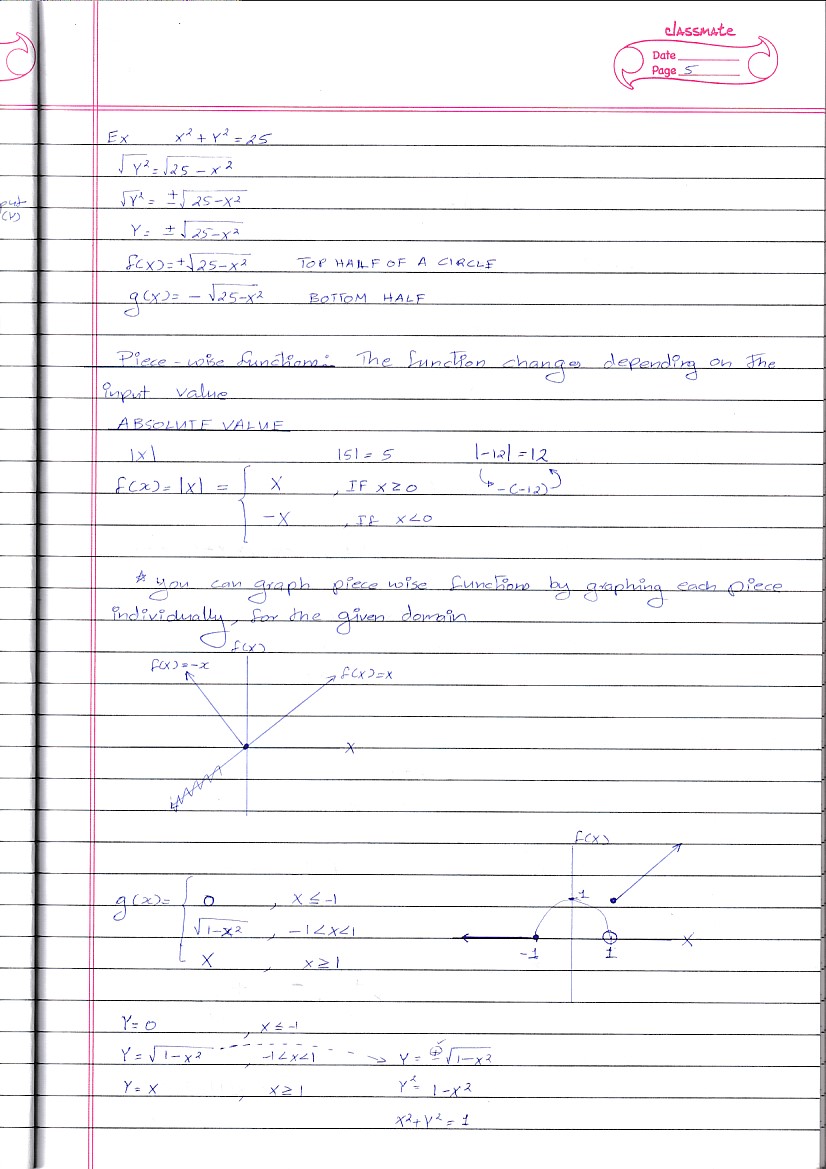 classmate
Date
Page 5
Ex x² + y² = 25
√y² = √25 - x²
√y² = ±√25-x²
Y = ±√25-x²
f(x) = +√25-x² TOP HALF OF A CIRCLE
g(x) = - √25-x² BOTTOM HALF
put
(V)
Piece-wise functions: The function changes depending on the
input value
ABSOLUTE VALUE
|x| |5| = 5 |-12| = 12
f(x) = |x| = { X , IF x ≥ 0 ↳ -(-12)
-X , If x<0
* you can graph piece wise functions by graphing each piece
individually, for the given domain
f(x)
f(x) = -x f(x) = x
X
f(x)
g(x) = { 0 , x ≤ -1 1
√1-x² , -1<x<1 X
-1 1
X , x ≥ 1
Y = 0 , x ≤ -1
Y = √1-x² , -1<x<1 → Y = ±√1-x²
Y = X , x ≥ 1 Y² = 1-x²
x² + y² = 1